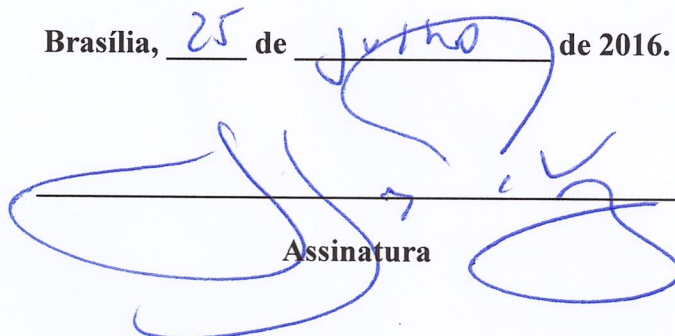 Brasília, 25 de Julho de 2016.
Assinatura